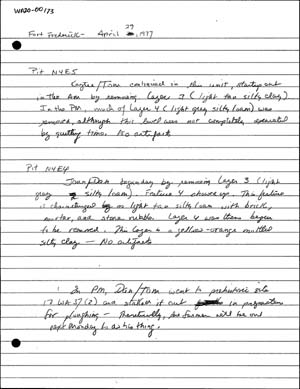 WA20-00173
Fort Frederick - April 29, 1977
Pit N4E5
in this unit, starting out
in the AM by removing Layer 3 (light tan silty clay)
In the PM, much of Layer 4 (light grey silty loam) was
removed, although this level was not completely excavated
by quitting time. No artifacts
Pit N4E4
began day by removing Layer 3 (light
grey silty loam). Feature 4 shows up. This feature
is characterized by a light tan silty loam with brick,
mortar, and stone rubble. Layer 4 was then begun
to be removed. This layer is a yellow-orange mottled
silty clay — No artifacts
In PM, Don/Tim went to prehistoric site
and staked it out in preparation
for ploughing — the farmer will be out
next Monday to do his thing.